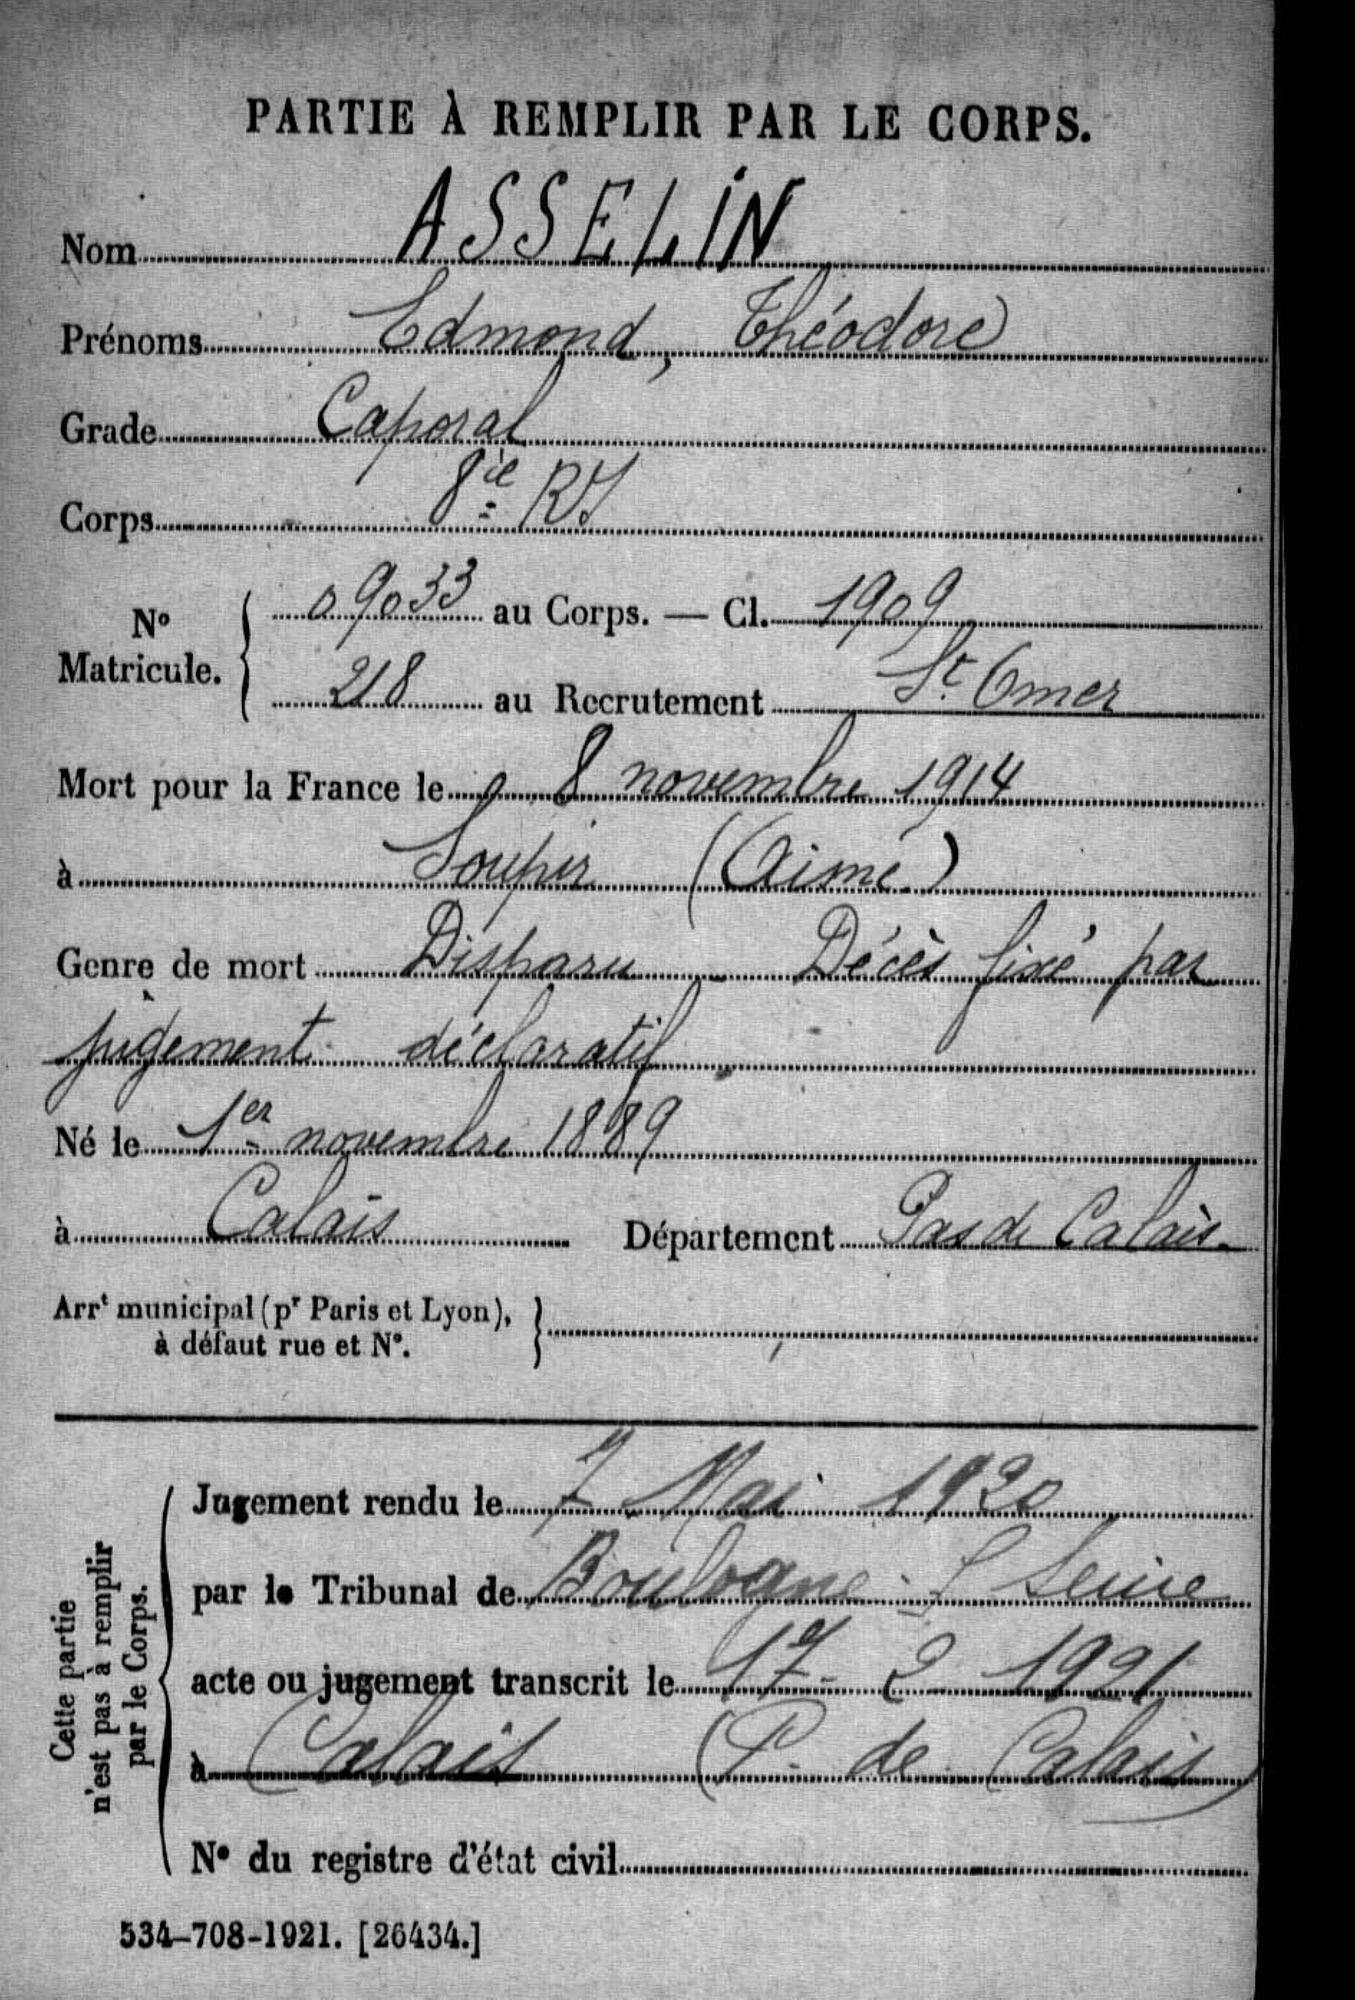 PARTIE À REMPLIR PAR LE CORPS.
Nom ASSELIN
Prénoms Edmond, Théodore
Grade Caporal
Corps 8ie RI
No Matricule. 09033 au Corps. — Cl. 1909
218 au Recrutement St. Omer
Mort pour la France le 8 novembre 1914
à Soupir (Aisne)
Genre de mort Disparu - Décès fixé par
jugement déclaratif
Né le 1er novembre 1889
à Calais Département Pas de Calais.
Arrt municipal (pr Paris et Lyon),
à défaut rue et No.
Cette partie
n'est pas à remplir
par le Corps.
Jugement rendu le 7 Mai 1920
par le Tribunal de Boulogne S Seine
acte ou jugement transcrit le 17-2-1921
à Calais (P. de Calais)
No du registre d'état civil
534-708-1921. [26434.]